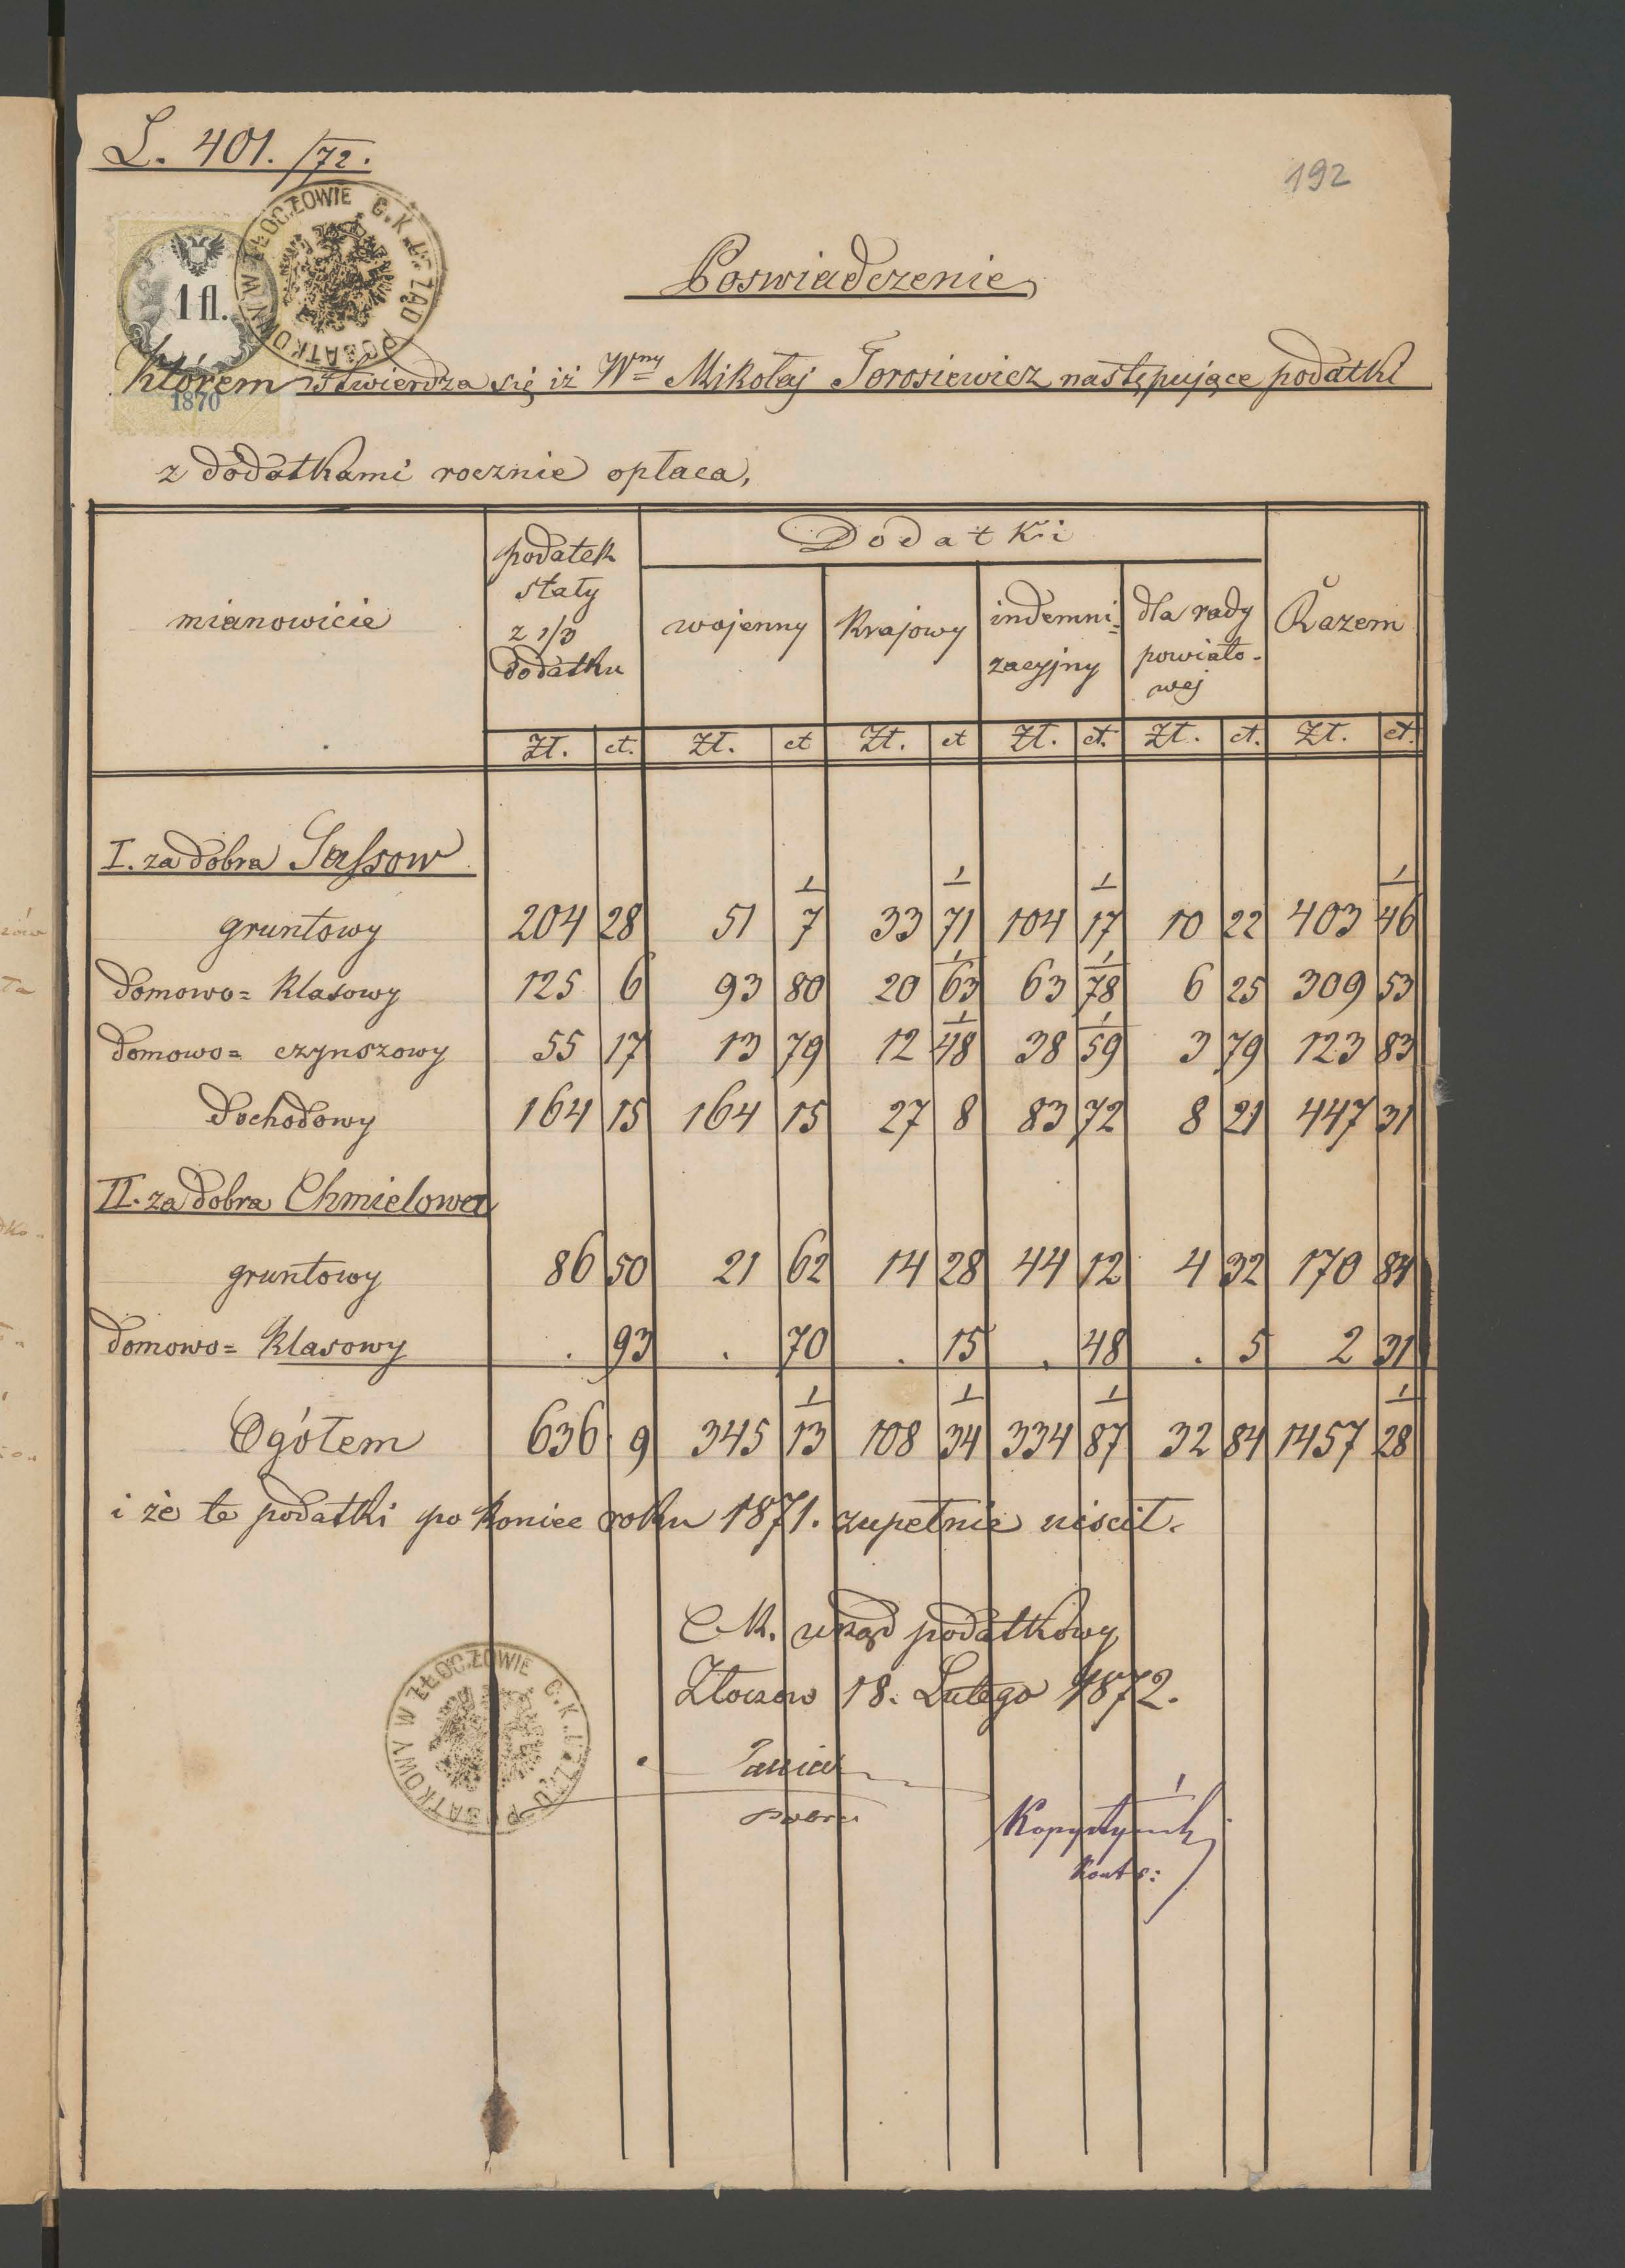 L. 401./72.
192
C. K. URZĄD PODATKOWY W ZŁOCZOWIE
1 fl.
1870
Poswiadczenie
którem stwierdza się iż Wny Mikołaj Torosiewicz następujące podatki
z dodatkami rocznie opłaca,
mianowicie
podatek
stały
z 1/3
dodatku
Dodatki
wojenny
krajowy
indemni=
zacyjny
dla rady
powiato-
wej
Razem
Zł. ct. Zł. ct Zł. ct Zł. ct. Zł. ct. Zł. ct.
I. za dobra Sassow
gruntowy 204 28 51 1/7 33 1/71 104 1/17 10 22 403 1/46
domowo= klasowy 125 6 93 80 20 1/63 63 1/78 6 25 309 53
domowo= czynszowy 55 17 13 79 12 1/48 38 1/59 3 79 123 83
dochodowy 164 15 164 15 27 8 83 72 8 21 447 31
II. za dobra Chmielowa
gruntowy 86 50 21 62 14 28 44 12 4 32 170 84
domowo= klasowy . 93 . 70 . 15 . 48 . 5 2 31
Ogółem 636 9 345 1/13 108 1/34 334 1/87 32 84 1457 1/28
i że te podatki po koniec roku 1871. zupełnie uiscił.
C. K. urząd podatkowy
Złoczow 18. Lutego 1872.
C. K. URZĄD PODATKOWY W ZŁOCZOWIE
Kopystyński